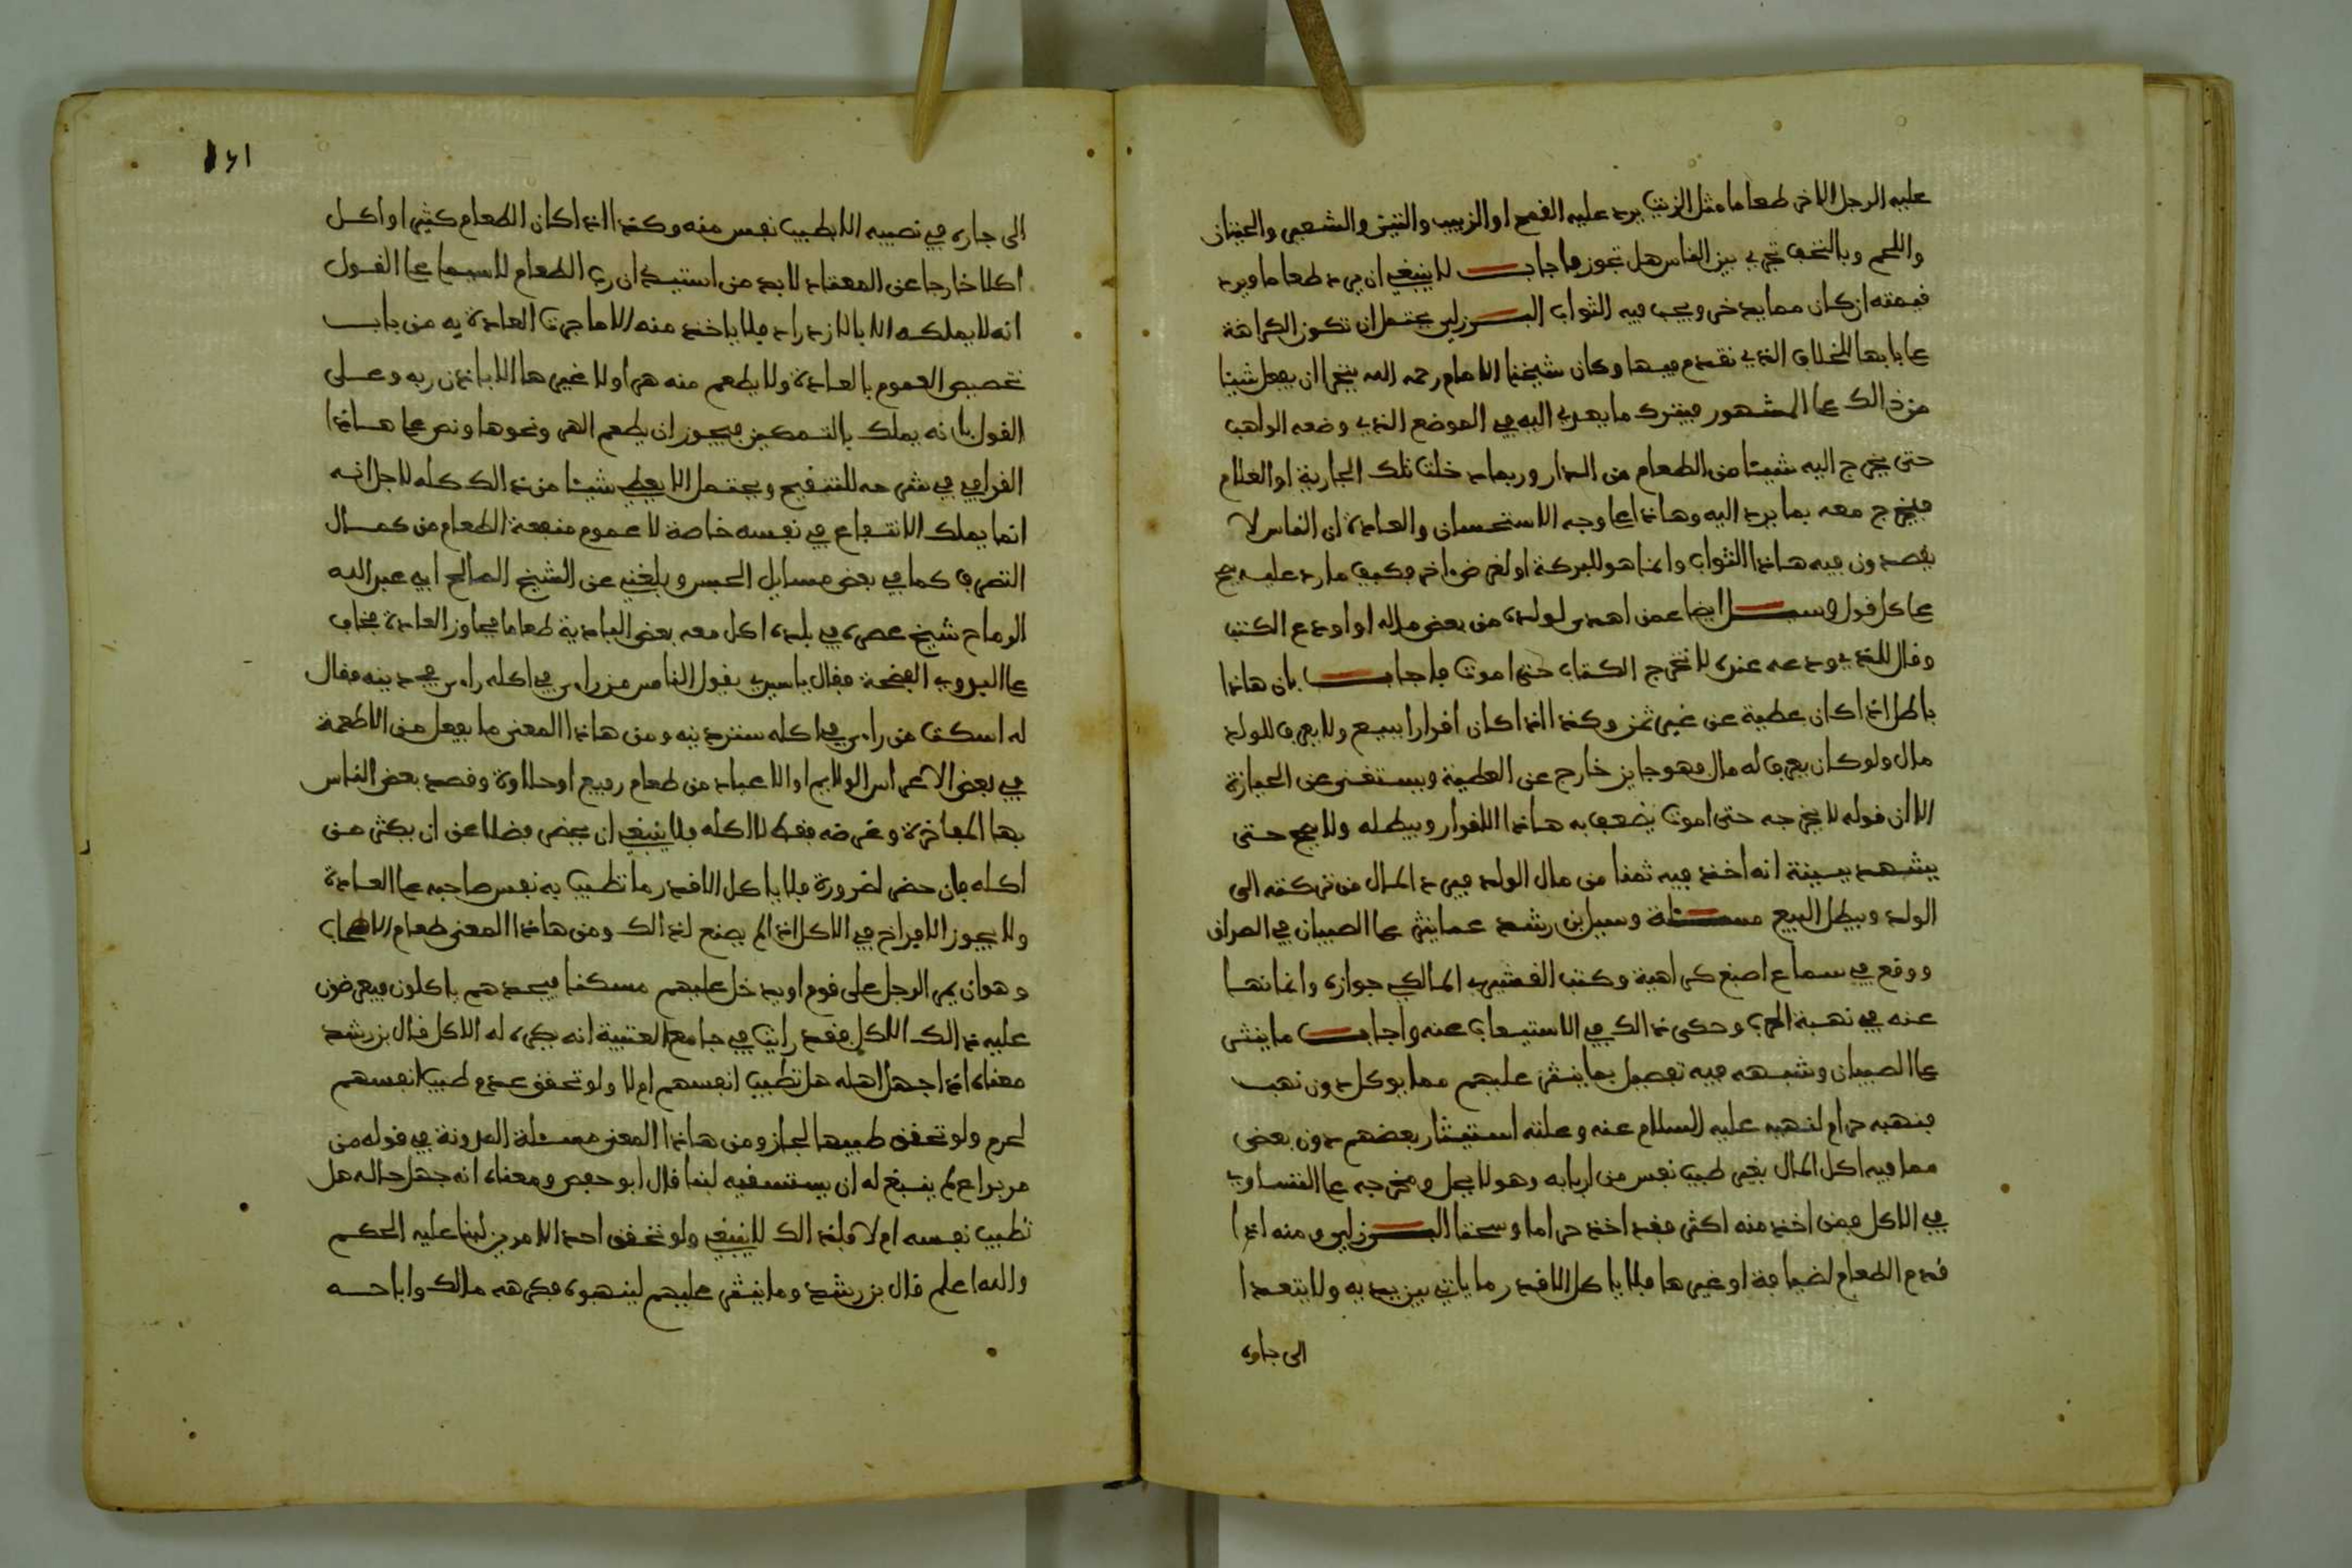 عليه الرجل الاخر طعاما مثل الزيت يرد عليه القمح او الزبيب والتين والشعير والحيتان
واللحم وبالتحف تجري بين الناس هل تجوز فاجاب لا ينبغي ان يرد طعاما ويرد
قيمته ان كان مما يدخر ويجب فيه الثواب البرزلي يحتمل ان تكون الكراهة
على بابها للخلاف الذي تقدم فيها وكان شيخنا الامام رحمه الله يتحرا ان يفعل شيئا
من ذالك على المشهور فيترك ما يهدي اليه في الموضع الذي وضعه الواهب
حتى يخرج اليه شيئا من الطعام من الدار وربما دخلت تلك الجارية او الغلام
فيخرج معه بما يرد اليه وهاذا على وجه الاستحسان والعادة ان الناس لا
يقصدون فيه هاذا الثواب وانما هو للبركة او لغرض اخر فكيف ما رد عليه صح
على كل قول وسئل ايضا عمن اهدى لولده من بعض ماله او اودع الكتب
وقال للذي ودعه عنده لا تخرج الكتاب حتى اموت فاجاب بان هاذا
باطل اذا كان عطية عن غير ثمن وكذا اذا كان اقرارا ببيع ولا يعرف للولد
مال ولو كان يعرف له مال فهو جايز خارج عن العطية ويستغنى عن الحيازة
الا ان قوله لا يخرجه حتى اموت يضعف به هاذا الاقرار ويبطله ولا يصح حتى
يشهد ببينة انه اخذ فيه ثمنا من مال الولد فيرد المال من تركته الى
الولد ويبطل البيع مسئلة وسيل ابن رشد عما ينثر على الصبيان في الصراف
ووقع في سماع اصبغ كراهية وكتب القشيري المالكي جوازه وانما نهى
عنه في نهبة الحرب وحكى ذالك في الاستيعاب عنه واجاب ما ينثر
على الصبيان وشبهه فيه تفصيل بما ينثر عليهم مما يوكل دون نهب
فنهبه حرام لنهيه عليه السلام عنه وعلته استيثار بعضهم دون بعض
مما فيه اكل المال بغير طيب نفس من اربابه وهو لا يحل ومخرجه على التساوي
في الاكل فمن اخذ منه اكثر فقد اخذ حراما وسحتا البرزلي ومنه اذا
قدم الطعام لضيافة او غيرها فلا ياكل الا قدر ما ياتي بين يديه ولا يتعدا
الى جاره
١٤١
الى جاره في نصيبه الا بطيب نفس منه وكذا اذا كان الطعام كثيرا واكل
اكلا خارجا عن المعتاد لا بد من استيذان رب الطعام لا سيما على القول
انه لا يملكه الا بالازدراد فلا ياخذ منه الا ما جرت العادة به من باب
تخصيص العموم بالعادة ولا يطعم منه هرا ولا غيرها الا باذن ربه وعلى
القول بانه يملك بالتمكين فيجوز ان يطعم الهر ونحوها ونص على هاذا
القرافي في شرحه للتنقيح ويحتمل الا يعطي شيئا من ذالك كله لاجل انه
انما يملك الانتفاع في نفسه خاصة لا عموم منفعة الطعام من كمال
التصرف كما في بعض مسايل الحبس وبلغني عن الشيخ الصالح ابي عبد الله
الرماح شيخ عصره في بلده اكل معه بعض البادية طعاما فجاوز العادة فخاف
على الفضحة فقال يا سيدي يقول الناس من راس في اكله راس في دينه فقال
له اسكت من راس في اكله سترد ينه ومن هاذا المعنى ما يفعل من الاطعمة
في بعض الاعراس الولايم او الاعياد من طعام رفيع او حلاوة وقصد بعض الناس
بها المفاخرة وغرضه فقط لا اكله فلا ينبغي ان يحضر فضلا عن ان يكثر من
اكله فان حضر لضرورة فلا ياكل الا قدر ما تطيب به نفس صاحبه على العادة
ولا يجوز الافراط في الاكل اذا لم يصنع لذالك ومن هاذا المعنى طعام
وهو ان يمر الرجل على قوم او يدخل عليهم مسكنا فيجدهم ياكلون فيعرضون
عليه ذالك الاكل فقد رايت في جامع العتبية انه يكره له الاكل قال بن رشد
معناه اذا جهل اهله هل تطيب انفسهم ام لا ولو تحقق عدم طيب انفسهم
لحرم ولو تحقق طيبها لجاز ومن هاذا المعنى مسئلة المدونة في قوله من
مر براع لم ينبغ له ان يستسقيه لبنا قال ابو حفص ومعناه انه جهل حاله هل
تطيب نفسه ام لا فلذالك لا ينبغي ولو تحقق احد الامرين لبنا عليه الحكم
والله اعلم قال بن رشد وما ينثر عليهم لينهبوه فكرهه مالك واباحه